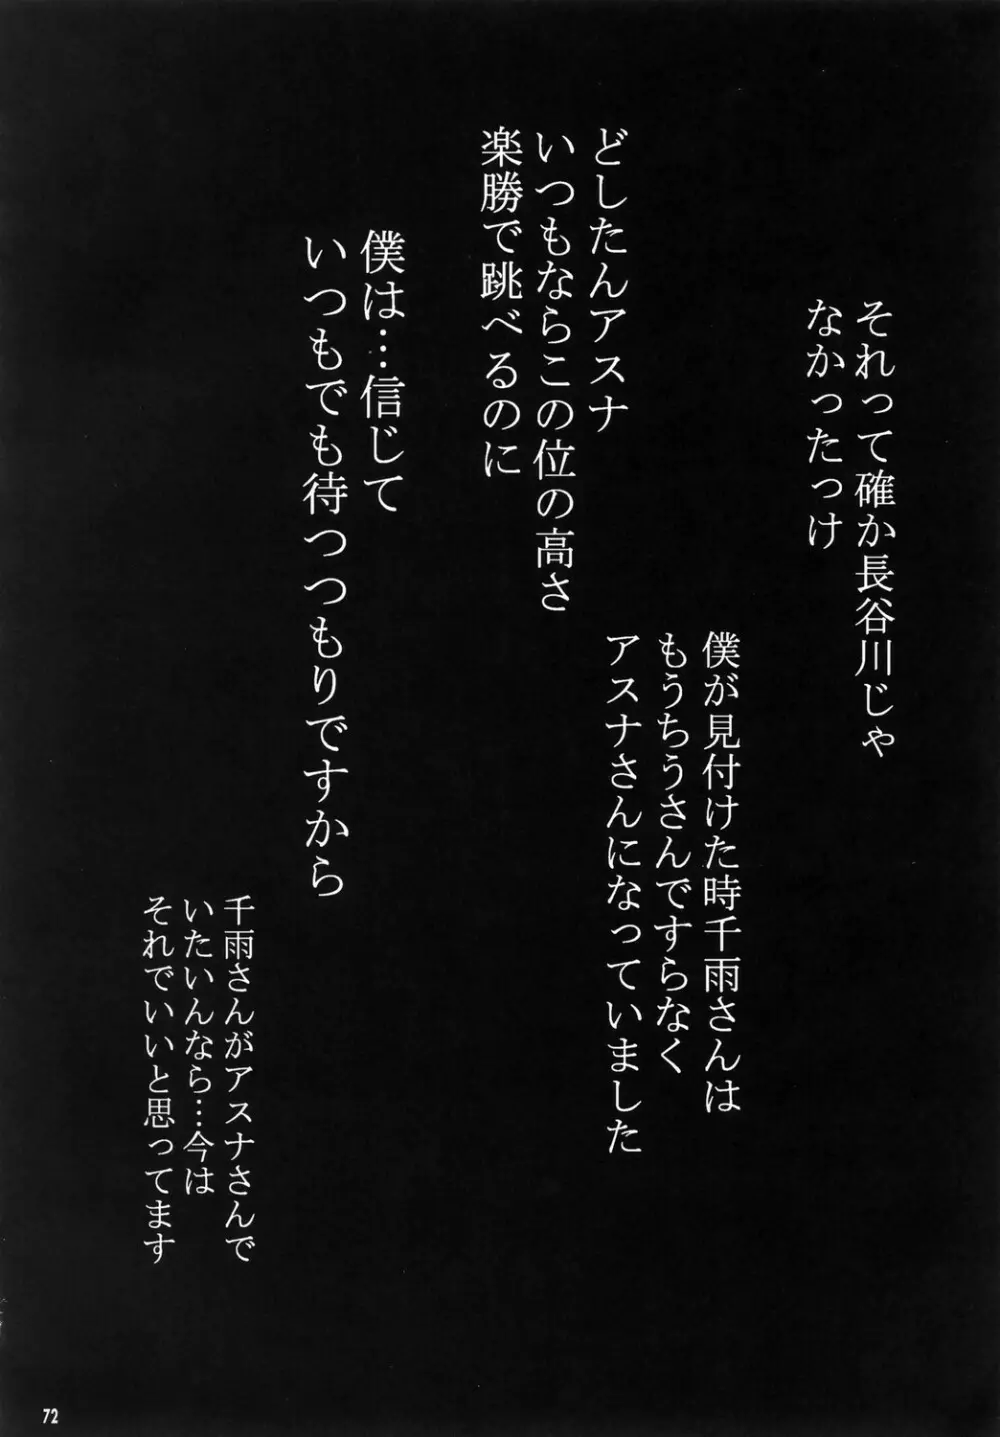 それって確か長谷川じゃ
なかったっけ
僕が見付けた時千雨さんは
もうちうさんですらなく
アスナさんになっていました
どしたんアスナ
いつもならこの位の高さ
楽勝で跳べるのに
僕は…信じて
いつもでも待つつもりですから
千雨さんがアスナさんで
いたいんなら…今は
それでいいと思ってます
72